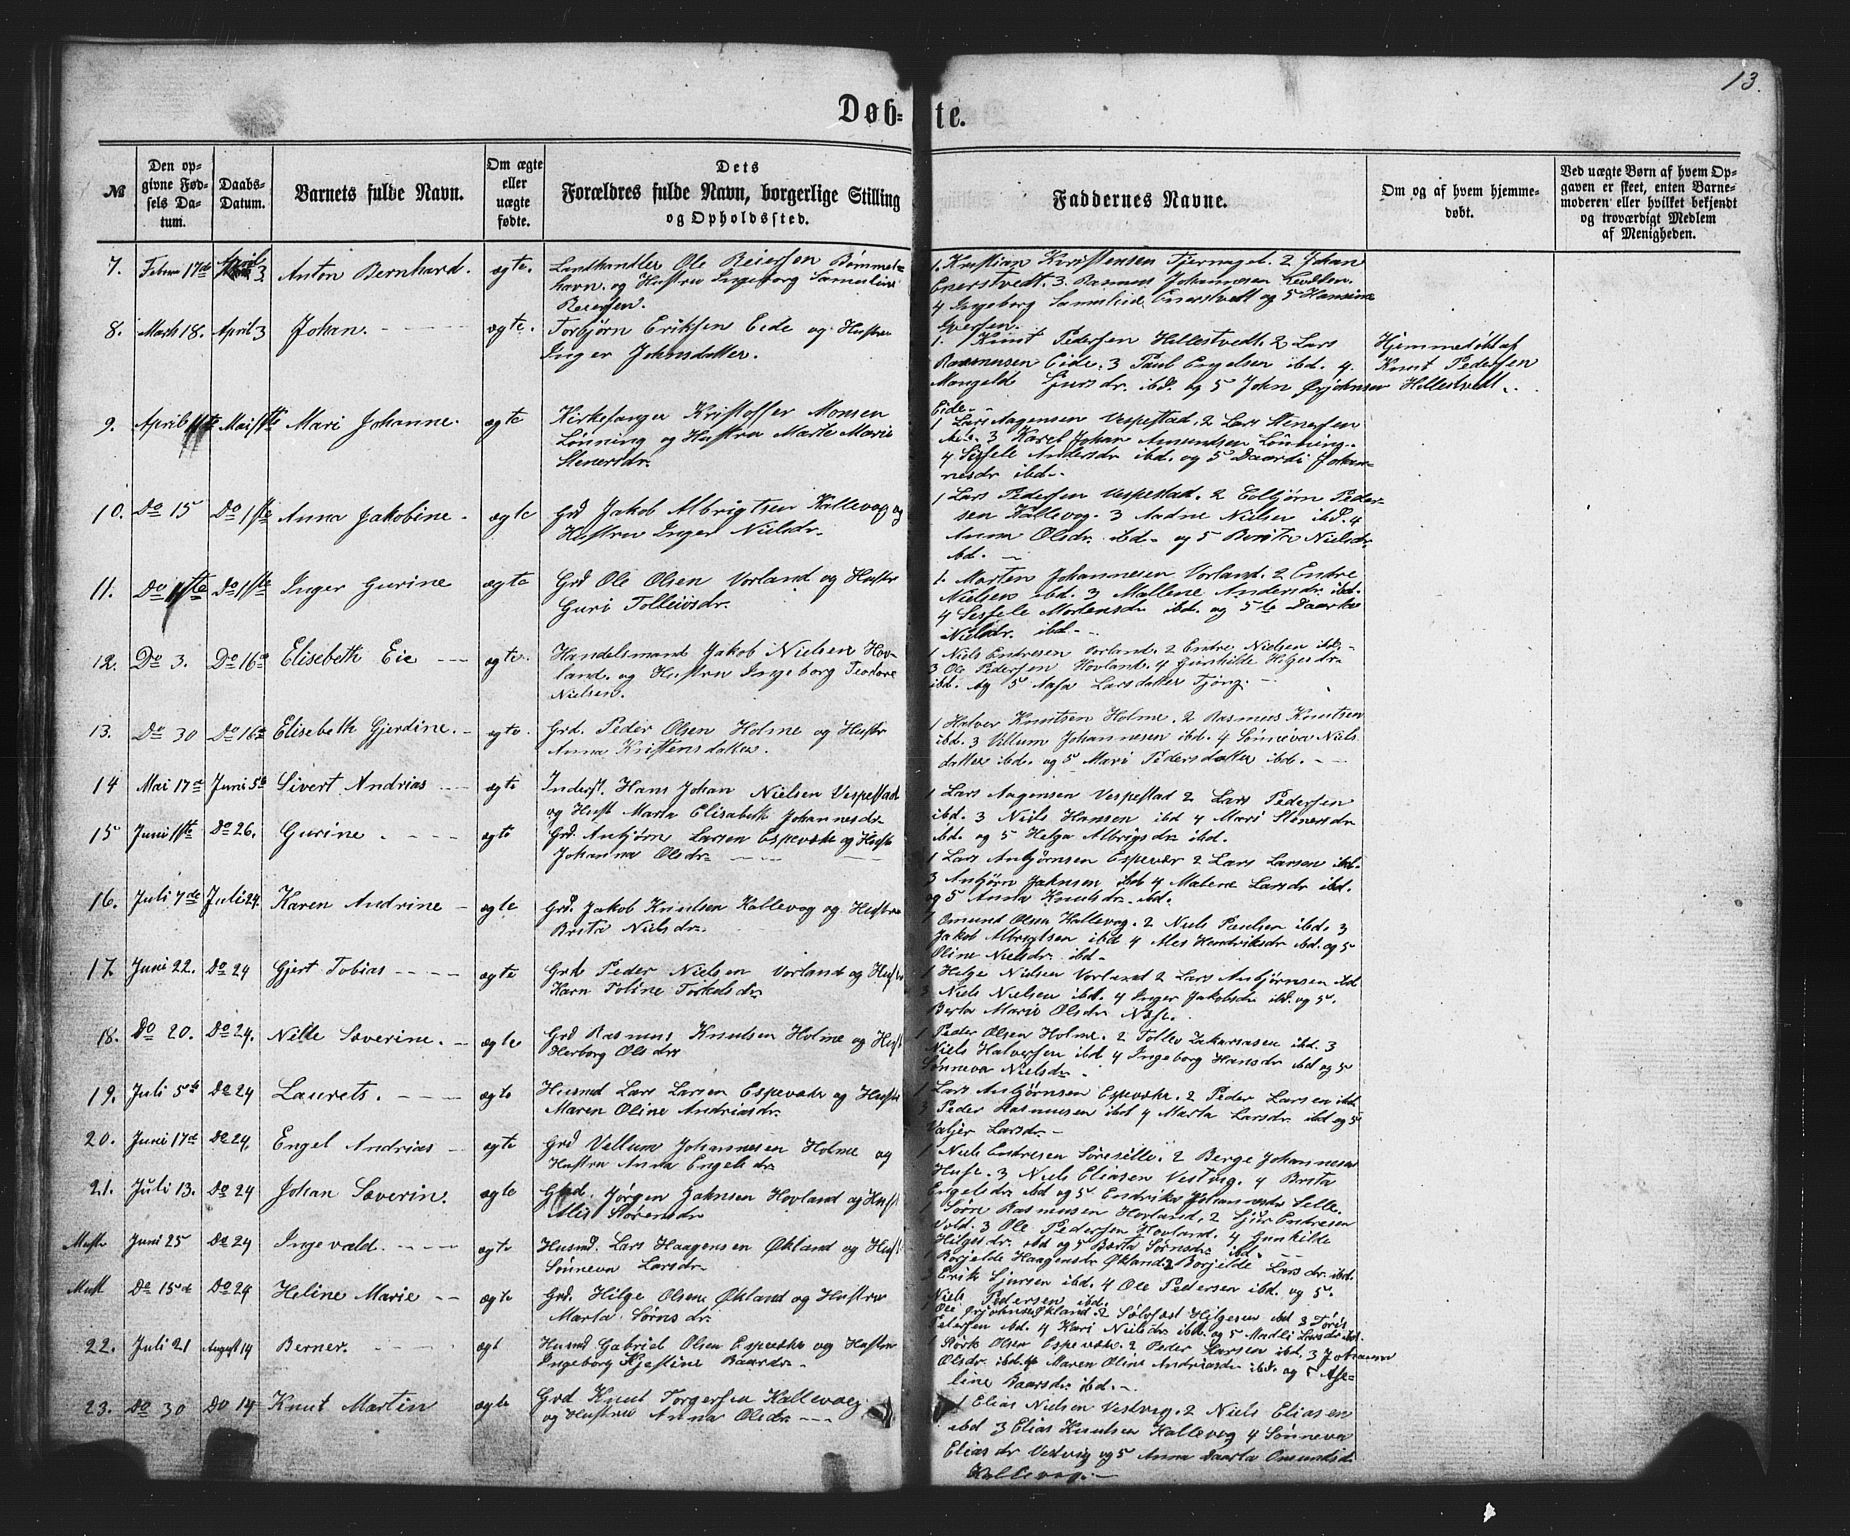 13.
Døb-te.
№
Den opgivne Fødsels Datum.
Daabs-Datum.
Barnets fulde Navn.
Om ægte eller uægte fødte.
Dets Forældres fulde Navn, borgerlige Stilling og Opholdssted.
Faddernes Navne.
Om og af hvem hjemmedøbt.
Ved uægte Børn af hvem Opgaven er skeet, enten Barnemoderen eller hvilket bekjendt og troværdigt Medlem af Menigheden.
7. Febru 17de April 3 Anton Bernhard. ægte. Landhandler Ole Beiersen Bømmel-
havn. og Hustru Ingeborg Samueline
Beiersen.
1. Kristian Kristensen Tjernaget. 2 Johan
Enerstvedt. 3. Rasmus Johannesen
4 Ingeborg Enerstvedt og 5 Hansine
Iversen.
8. Marts 18. April 3 Johan. ægte. Torbjørn Eriksen Eide og Hustru
Inger Johnsdatter.
1. Knut Pedersen Hellestvedt. 2 Lars
Rasmusen Eide. 3 Paul Engelsen ibd. 4.
Mangelde Sjursdr. ibd. og 5 John Ørjohnsen
Eide.
Hjemmedøbt af
Knut Pedersen
Hellestvedt.
9. April 11te Mai 1ste Mari Johanne. ægte Kirkesanger Kristoffer Monsen
Lønning og Hustru Marte Marie
Stenersdr.
1 Lars Aagensen Vespestad. 2 Lars Stenersen
ibd. 3 Karel Johan Amundsen Lønning.
4 Sissele Andersdr ibd. og 5 Daardi Johan-
nesdr ibd.
10. Do 15 Do 1ste Anna Jakobine. ægte Grd Jakob Albrigtsen Kallevag og
Hustru Inger Nielsdr.
1 Lars Pedersen Vespestad. 2 Eolbjørn Peder-
sen Kallevog. 3 Aadne Nielsen ibd. 4
Anna Olsdr. ibd. og 5 Berita Nielsdr.
ibd.
11. Do 11te Do 1ste Inger Gurine ægte Grd Ole Olsen Vorland og Hustr
Guri Tolleivsdr.
1. Morten Johannesen Vorland. 2 Endre
Nielsen ibd. 3 Mallene Andersdr. ibd.
4 Sessele Mortensdr ibd. og 5te Daarte
Nielsdr. ibd.
12. Do 3. Do 16de Elisebeth Eie ægte. Handelsmand Jakob Nielsen Hov-
land. og Hustru Ingeborg Teodore
Nielsen.
1 Niels Endresen Vorland. 2 Endre Nielsen ibd.
3 Ole Pedersen Hovland. 4 Gunhilde Helgesdr.
ibd. og 5 Aasa Larsdatter Tjong.
13. Do 30 Do 16de Elisebeth Gjerdine. ægte. Grd. Peder Olsen Holme og Hustr
Anna Kristensdatter.
1 Halver Knutsen Holme. 2 Rasmus Knutsen
ibd. 3 Villum Johannesen ibd. 4 Sønneva Niels
datter ibd. og 5 Mari Pedersdatter ibd.
14 Mai 17de Juni 5te Sivert Andrias ægte Inderst. Hans Johan Nielsen Vespestad
og Hust Marta Elisabeth Johannesdr.
1 Lars Aagensen Vespestad 2 Lars Pedersen
ibd. 3 Niels Hansen ibd 4 Mari Stenersdr
ibd. og 5 Helga Albrigsdr. ibd.
15 Juni 1ste Do 26. Gurine. ægte Grd. Anbjørn Larsen Espevær og Hustr
Johanna Olsdr.
1 Lars Anbjørnsen Espevær 2 Lars Larsen ibd.
3 Anbjørn Jahnsen ibd 4 Malene Larsdr ibd.
og 5 Anna Knutsdr. ibd.
16. Juli 7de Juli 24. Karen Andrine ægte Grd. Jakob Knutsen Kallevog og Hustru
Brita Nielsdr.
1 Omund Olsen Kallevog. 2 Niels Paulsen ibd. 3
Jakob Albrigtsen ibd 4 Ales Hendriksdr ibd. og 5
Oline Nielsdr. ibd.
17. Juni 22. Do 24 Gjert Tobias ægte Grd. Peder Nielsen Vorland og Hustr
Karn Toline Torkelsdr.
1 Helge Nielsen Vorland 2 Lars Anbjørnsen ibd
3 Niels Nielsen ibd. 4 Inger Jakobsdr ibd. og 5.
Berta Marie Olsdr.
18. Do 20. Do 24. Nille Severine. ægte Grd Rasmus Knutsen Holme og Hust
Herborg Olsdtr
1 Peder Olsen Holme. 2 Tollev Zakariasen ibd. 3
Niels Halversen ibd 4 Ingeborg Hansdr ibd og 5
Sønneva Nielsdr.
19. Juli 5te Do 24 Laurets. ægte Husmd Lars Larsen Espevær og Hustr
Maren Oline Andriasdr.
1 Lars Anbjørnsen Espevær. 2 Peder Larsen ibd
3 Peder Rasmusen ibd 4 Marta Larsdr. ibd og 5
Valjer Larsdr.
20. Juni 17de Do 24, Engel Andrias ægte Grd Vellum Johannesen Holme og
Hustru Anna Engelsdr.
1 Niels Endresen Søreselle. 2 Berge Johannesen
Huse. 3 Niels Eliasen Vestvig. 4 Brita
Engelsdr. ibd og 5. Endrika Johannesdr Selle.
21. Juli 13. Do 24 Johan Severin. ægte Grd. Jørgen Jahnsen Hovland og Hust
Alis Sørensdr
1 Sørn Rasmusen Hovland. 2 Sjur Endresen
Vold. 3 Ole Pedersen Hovland. 4 Gunhilde
Hilgesdr. ibd og 5 Berta Sørnsdr. ibd.
Juni 25 Do 24 Ingevald. ægte Husmd. Lars Haagensen Økland og Hust
Sønneva Larsdr.
1 Borjelde Haagensdr Økland 2 Borjelde Larsdr. ibd.
3 Erik Sjursen ibd. 4 Ole Pedersen ibd. og 5.
Niels Pedersen ibd.
Do 15de Do 24 Heline Marie ægte Grd. Hilge Olsen Økland og Hustru
Marta Sørnsdr.
1 Ole Økland. 2 Sølvfast Hilgesen ibd 3 Tøris
Petersen ibd. 4 Kari Nielsdr. ibd. og 5 Madli Larsdr ibd.
22. Juli 21 August 14 Berner. ægt Husmd Gabriel Olsen Espevær og Hustru
Ingeborg Kjestine Baardr.
1 Størk Olsen Espevær. 2 Peder Larsen ibd. 3 Johanna
Olsdr. ibd. 4 Maren Oline Andriasdr ibd. og 5 Ase-
line Baarsdr. ibd.
23. Do 30 Do 14 Knut Martin ægte Grd Knut Torgersen Kallevog
og Hustru Anna Olsdr
1 Elias Nielsen Vestvig. 2 Niels Eliasen
ibd 3 Elias Knutsen Kallevog 4 Sønneva
Eliasdr Vestvig og 5 Anna Daarta Omundsdr.
Kallevog.